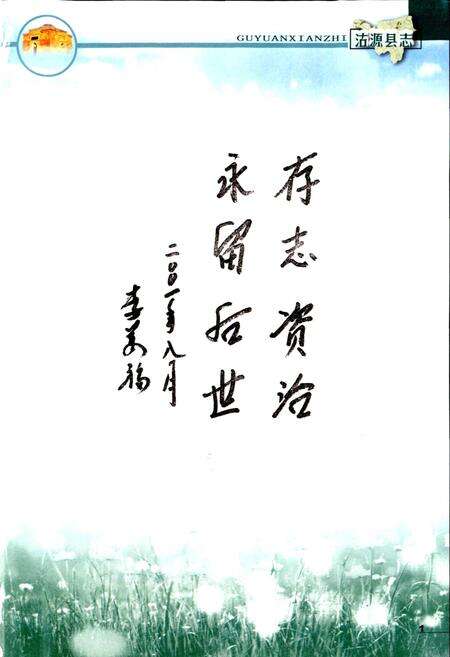 GUYUANXIANZHI 沽源县志
存志资治
永留后世
二〇〇一年八月
李万福
1